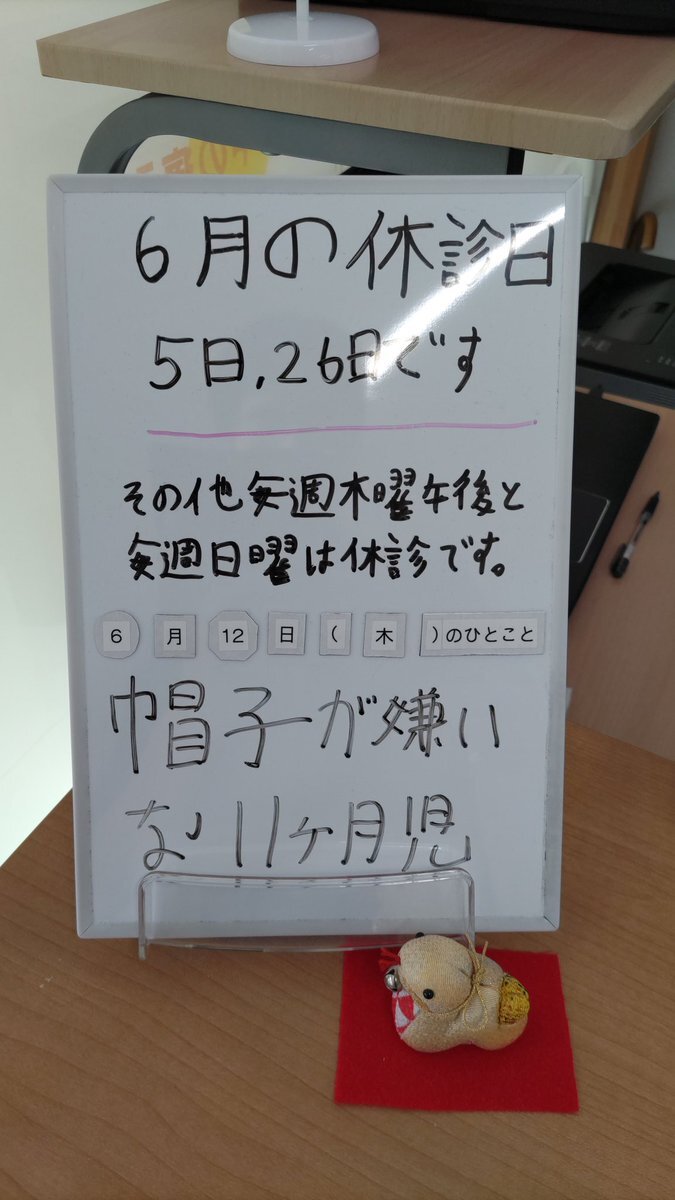 6月の休診日
5日,26日です
その他毎週木曜午後と
毎週日曜は休診です。
6月12日(木)のひとこと
帽子が嫌い
な11ヶ月児